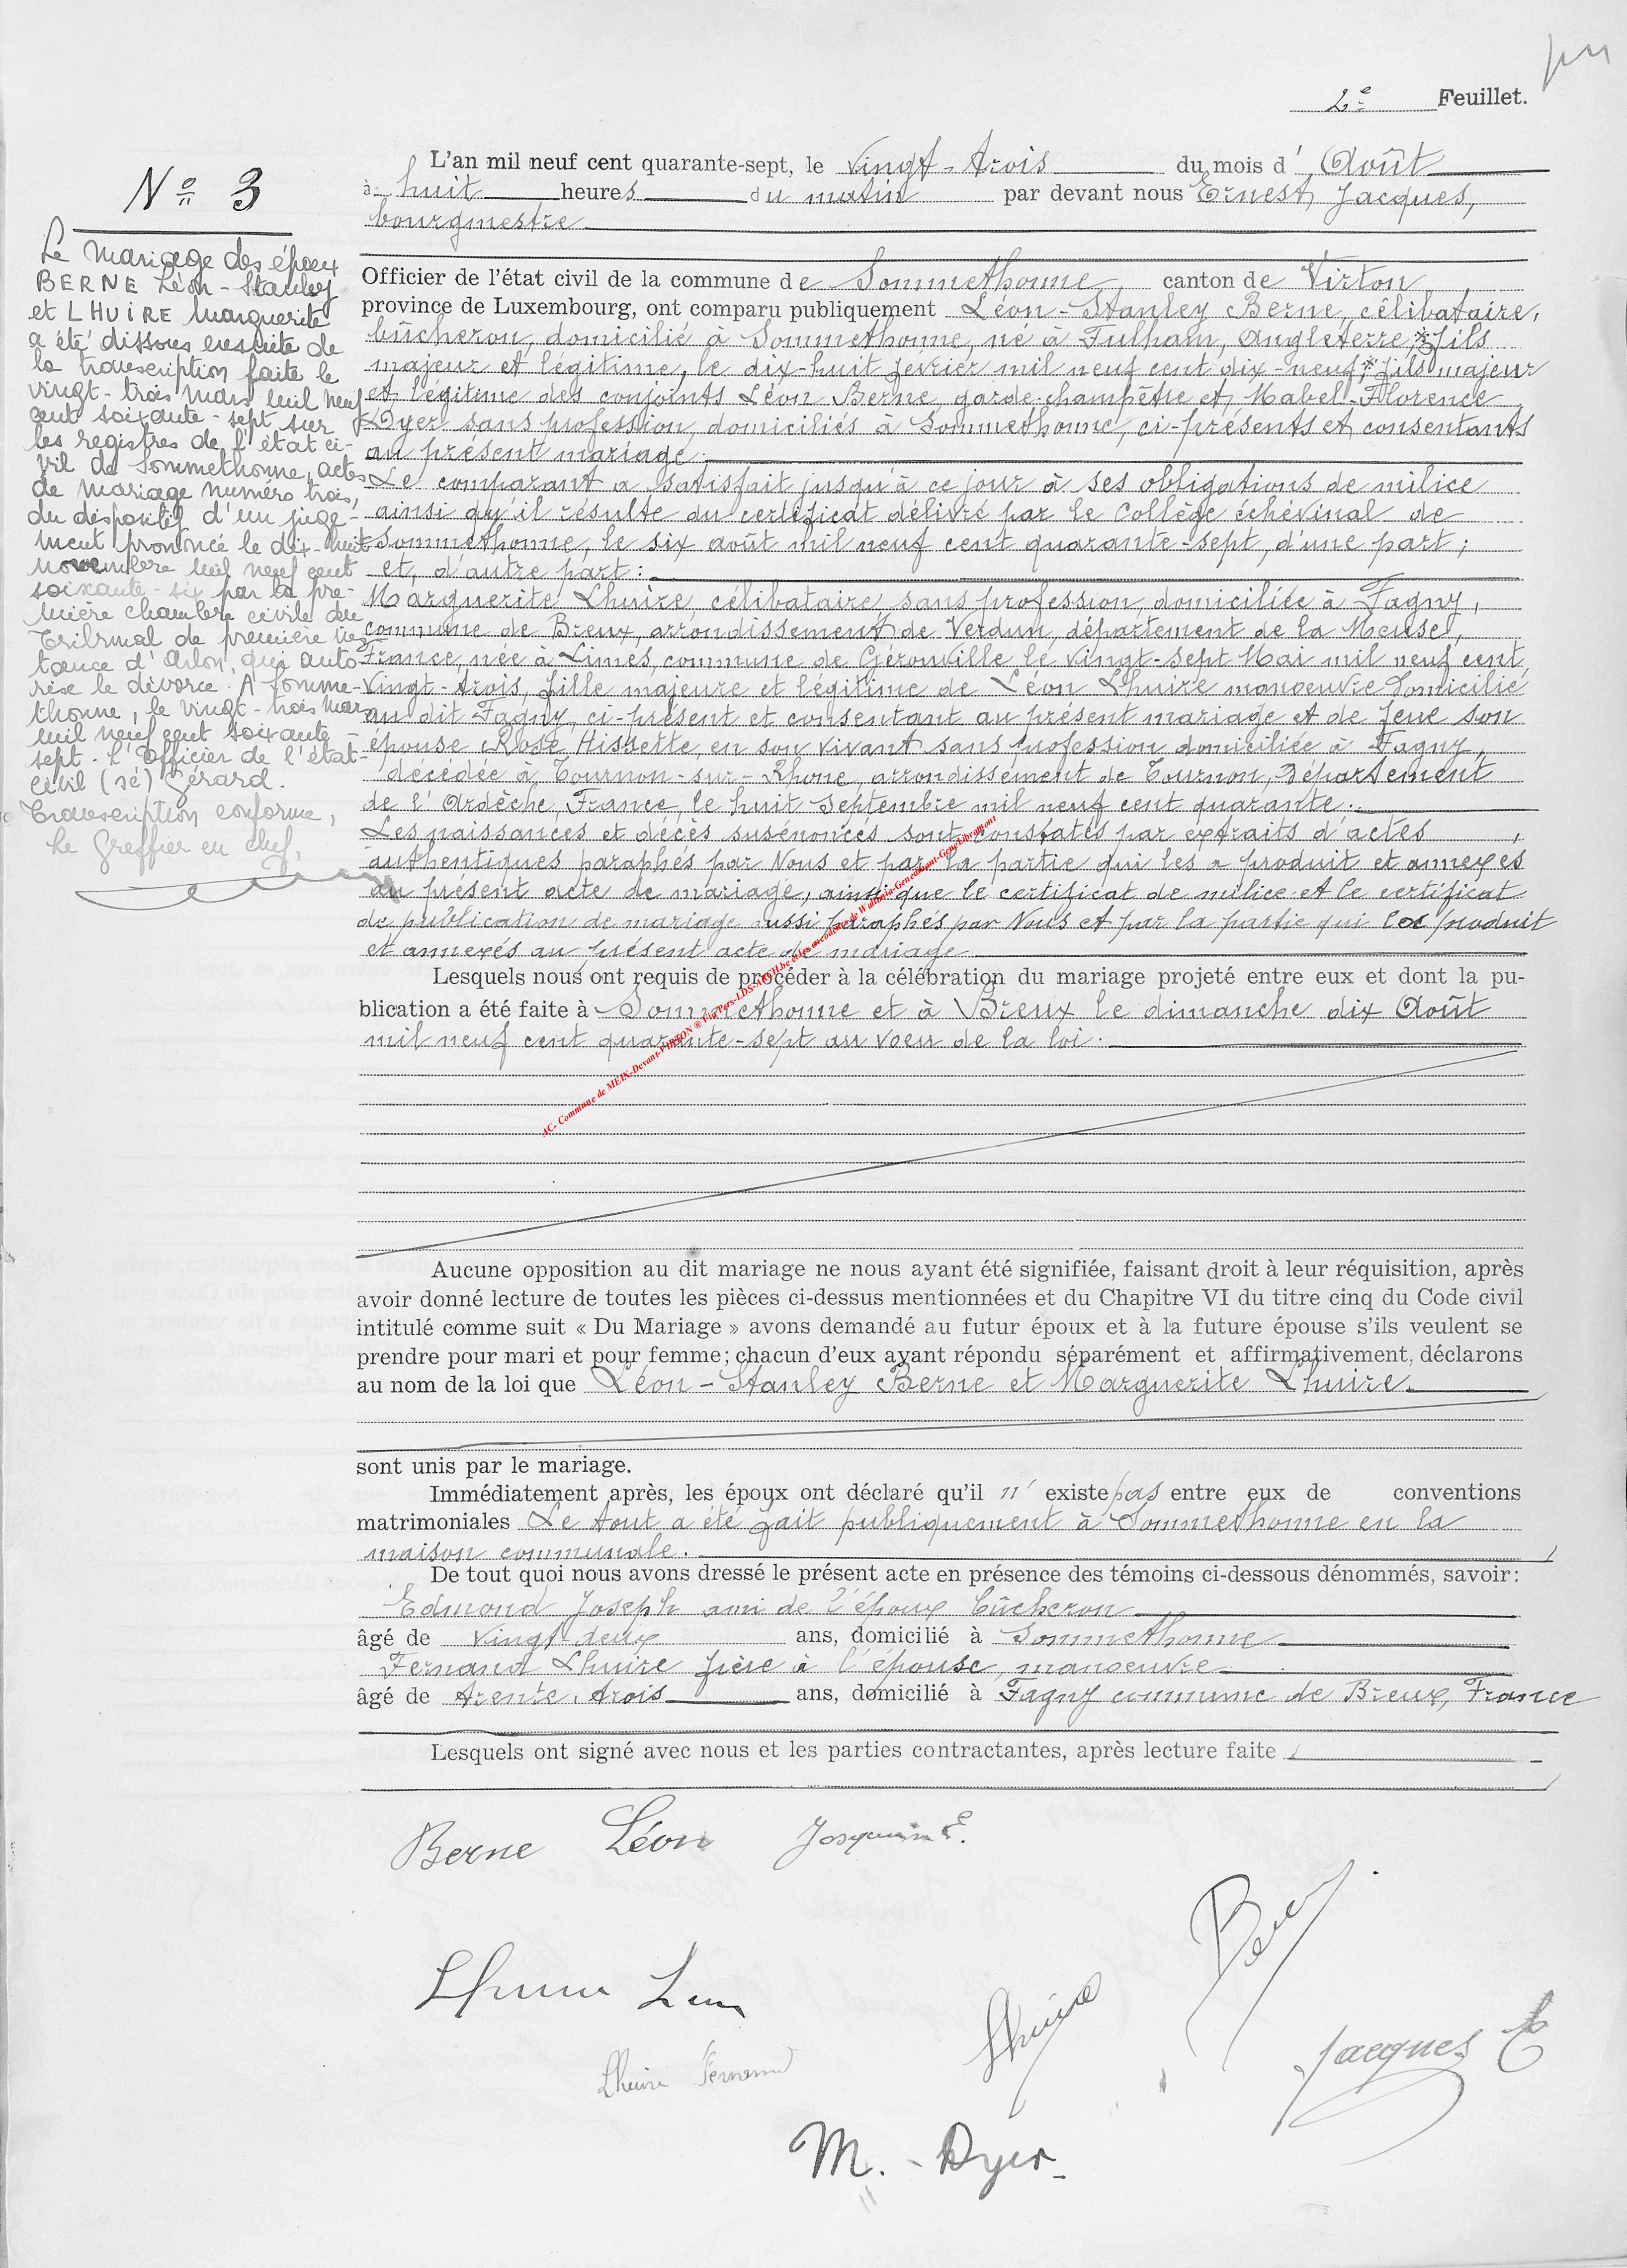 2e Feuillet.
No 3
L'an mil neuf cent quarante-sept, le vingt-trois du mois d' Août
à huit heures du matin par devant nous Ernest Jacques,
bourgmestre
Officier de l'état civil de la commune de Sommethonne, canton de Virton
province de Luxembourg, ont comparu publiquement Léon-Stanley Berne, célibataire,
bûcheron, domicilié à Sommethonne, né à Fulham, Angleterre, fils
majeur et légitime, le dix-huit février mil neuf cent dix-neuf, fils majeur
et légitime des conjoints Léon Berne, garde-champêtre et Mabel-Florence
Dyer sans profession, domiciliés à Sommethonne, ci-présents et consentants
au présent mariage.
Le comparant a satisfait jusqu'à ce jour à ses obligations de milice
ainsi qu'il résulte du certificat délivré par le Collège échévinal de
Sommethonne, le six août mil neuf cent quarante-sept, d'une part;
et, d'autre part:
Marguerite Lhuire, célibataire, sans profession, domiciliée à Fagny,
commune de Breux, arrondissement de Verdun, département de la Meuse,
France, née à Limes, commune de Gérouville, le vingt-sept Mai mil neuf cent
vingt-trois, fille majeure et légitime de Léon Lhuire manoeuvre domicilié
au dit Fagny, ci-présent et consentant au présent mariage et de feue son
épouse Rose Hissette, en son vivant sans profession domiciliée à Fagny,
décédée à Tournon-sur-Rhone, arrondissement de Tournon, Département
de l'Ardèche, France, le huit Septembre mil neuf cent quarante.
Les naissances et décès susénoncés sont constatés par extraits d'actes
authentiques paraphés par Nous et par la partie qui les a produit et annexés
au présent acte de mariage, ainsi que le certificat de milice et le certificat
de publication de mariage aussi paraphés par Nous et par la partie qui les produit
et annexés au présent acte de mariage
Lesquels nous ont requis de procéder à la célébration du mariage projeté entre eux et dont la pu-
blication a été faite à Sommethonne et à Breux le dimanche dix Août
mil neuf cent quarante-sept au voeu de la loi.
Aucune opposition au dit mariage ne nous ayant été signifiée, faisant droit à leur réquisition, après
avoir donné lecture de toutes les pièces ci-dessus mentionnées et du Chapitre VI du titre cinq du Code civil
intitulé comme suit « Du Mariage » avons demandé au futur époux et à la future épouse s'ils veulent se
prendre pour mari et pour femme; chacun d'eux ayant répondu séparément et affirmativement, déclarons
au nom de la loi que Léon-Stanley Berne et Marguerite Lhuire.
sont unis par le mariage.
Immédiatement après, les époux ont déclaré qu'il n' existe pas entre eux de conventions
matrimoniales Le tout a été fait publiquement à Sommethonne en la
maison communale.
De tout quoi nous avons dressé le présent acte en présence des témoins ci-dessous dénommés, savoir:
Edmond Joseph ami de l'époux bûcheron
âgé de vingt-deux ans, domicilié à Sommethonne
Fernand Lhuire frère à l'épouse, manoeuvre
âgé de trente-trois ans, domicilié à Fagny commune de Breux, France
Lesquels ont signé avec nous et les parties contractantes, après lecture faite
Le mariage des époux
BERNE Léon-Stanley
et LHUIRE Marguerite
a été dissous ensuite de
la transcription faite le
vingt-trois mars mil neuf
cent soixante-sept sur
les registres de l'état ci-
vil de Sommethonne, actes
de mariage numéro trois,
du dispositif d'un juge-
ment prononcé le dix-huit
novembre mil neuf cent
soixante-six par la pre-
mière chambre civile du
Tribunal de première ins-
tance d'Arlon, qui auto-
rise le divorce. A Somme-
thonne, le vingt-trois mars
mil neuf cent soixante-
sept. L'Officier de l'état-
Civil (sé) Gérard.
Transcription conforme,
Le Greffier en chef,
AC- Commune de MEIX-Devant-VIRTON ®
Berne Léon
Lhuire Léon
Lhuire Fernand
Lhuire
Jacques E
M. Dyer